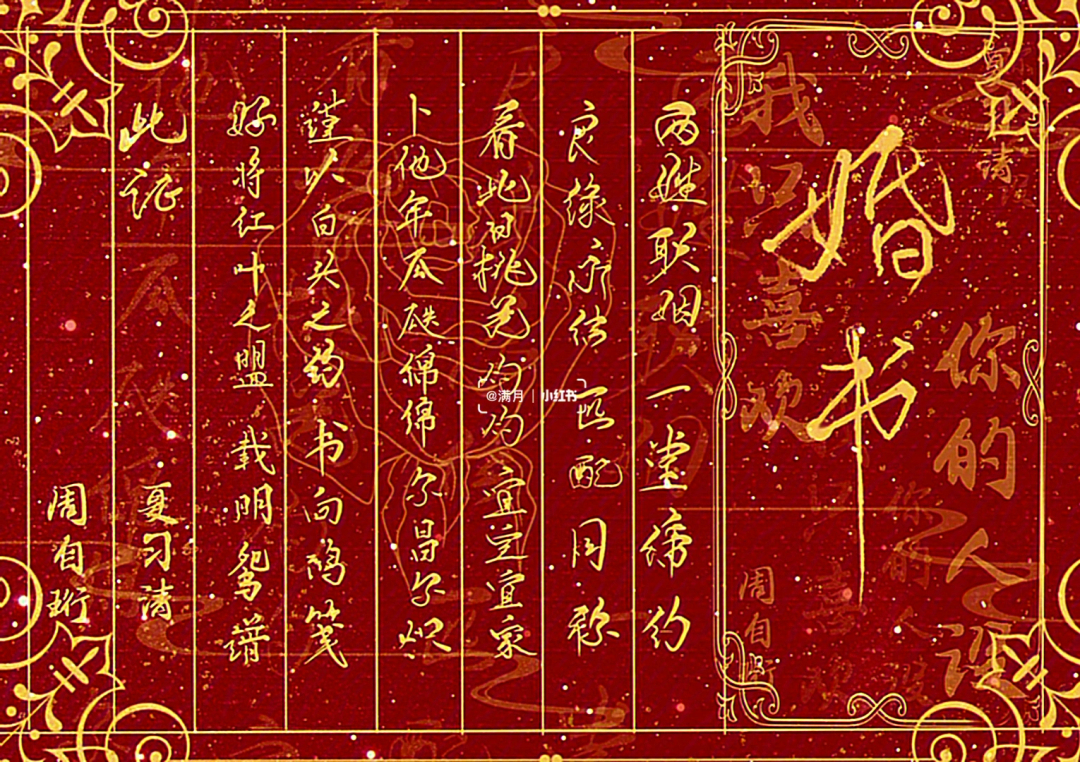 夏习清
你的人设
婚书
我只喜欢
周自珩
两姓联姻一堂缔约
良缘永结 匹配同称
看此日桃花灼灼 宜室宜家
卜他年瓜瓞绵绵 尔昌尔炽
谨以白头之约 书向鸿笺
好将红叶之盟 载明鸳谱
此证 夏习清
周自珩
@满月 | 小红书